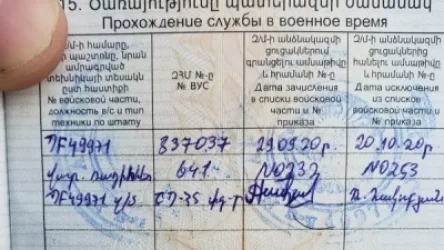 15. Ծառայությունը պատերազմի ժամանակ
Прохождение службы в военное время
Զ/Մ-ի համարը,
պաշտոնը, նրան
ամրագրված
տեխնիկայի տեսակն
ըստ հաստիքի
№ войсковой части,
должность в/с и тип
техники по штату
ԶՀՄ №-ը
№ ВУС
Զ/մ-ի անձնակազմի
ցուցակներում
գրանցելու ամսաթիվը
և հրամանի №-ը
Дата зачисления
в списки войсковой
части и №
приказа
Զ/մ-ի անձնակազմի
ցուցակներից
հանելու ամսաթիվը
և հրամանի №-ը
Дата исключения
из списков
войсковой части
и № приказа
49971 837037 29.09.20г. 20.10.20г.
641 N0232 N0253
49971